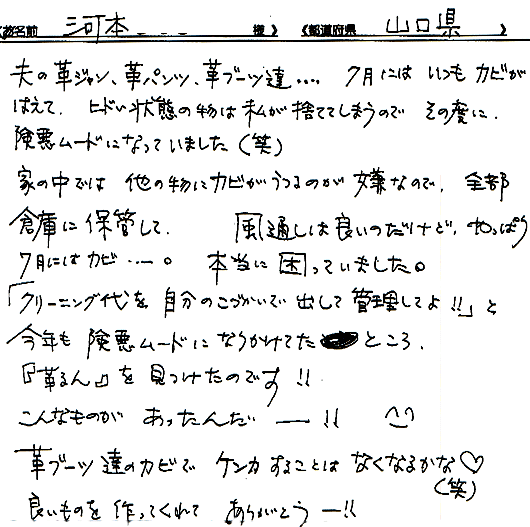 お名前 河本 様》 《都道府県 山口県 》
夫の革ジャン、革パンツ、革ブーツ達‥‥ 7月には いつも カビが
はえて、ヒドい状態の物は私が捨ててしまうので その度に、
険悪ムードになっていました(笑)
家の中では 他の物にカビがうつるのが 嫌なので、全部
倉庫に 保管して、 風通しは良いのだけど、やっぱり
7月にはカビ‥ー。 本当に 困っていました。
「クリーニング代を 自分のこづかいで 出して 管理してよ!!」と
今年も 険悪ムードに なりかけてた ところ、
『革るん』を 見つけたのです!!
こんなものが あったんだ ー!! ^^
革ブーツ達のカビで ケンカすることは なくなるかな♡
(笑)
良いものを 作ってくれて ありがとうー!!